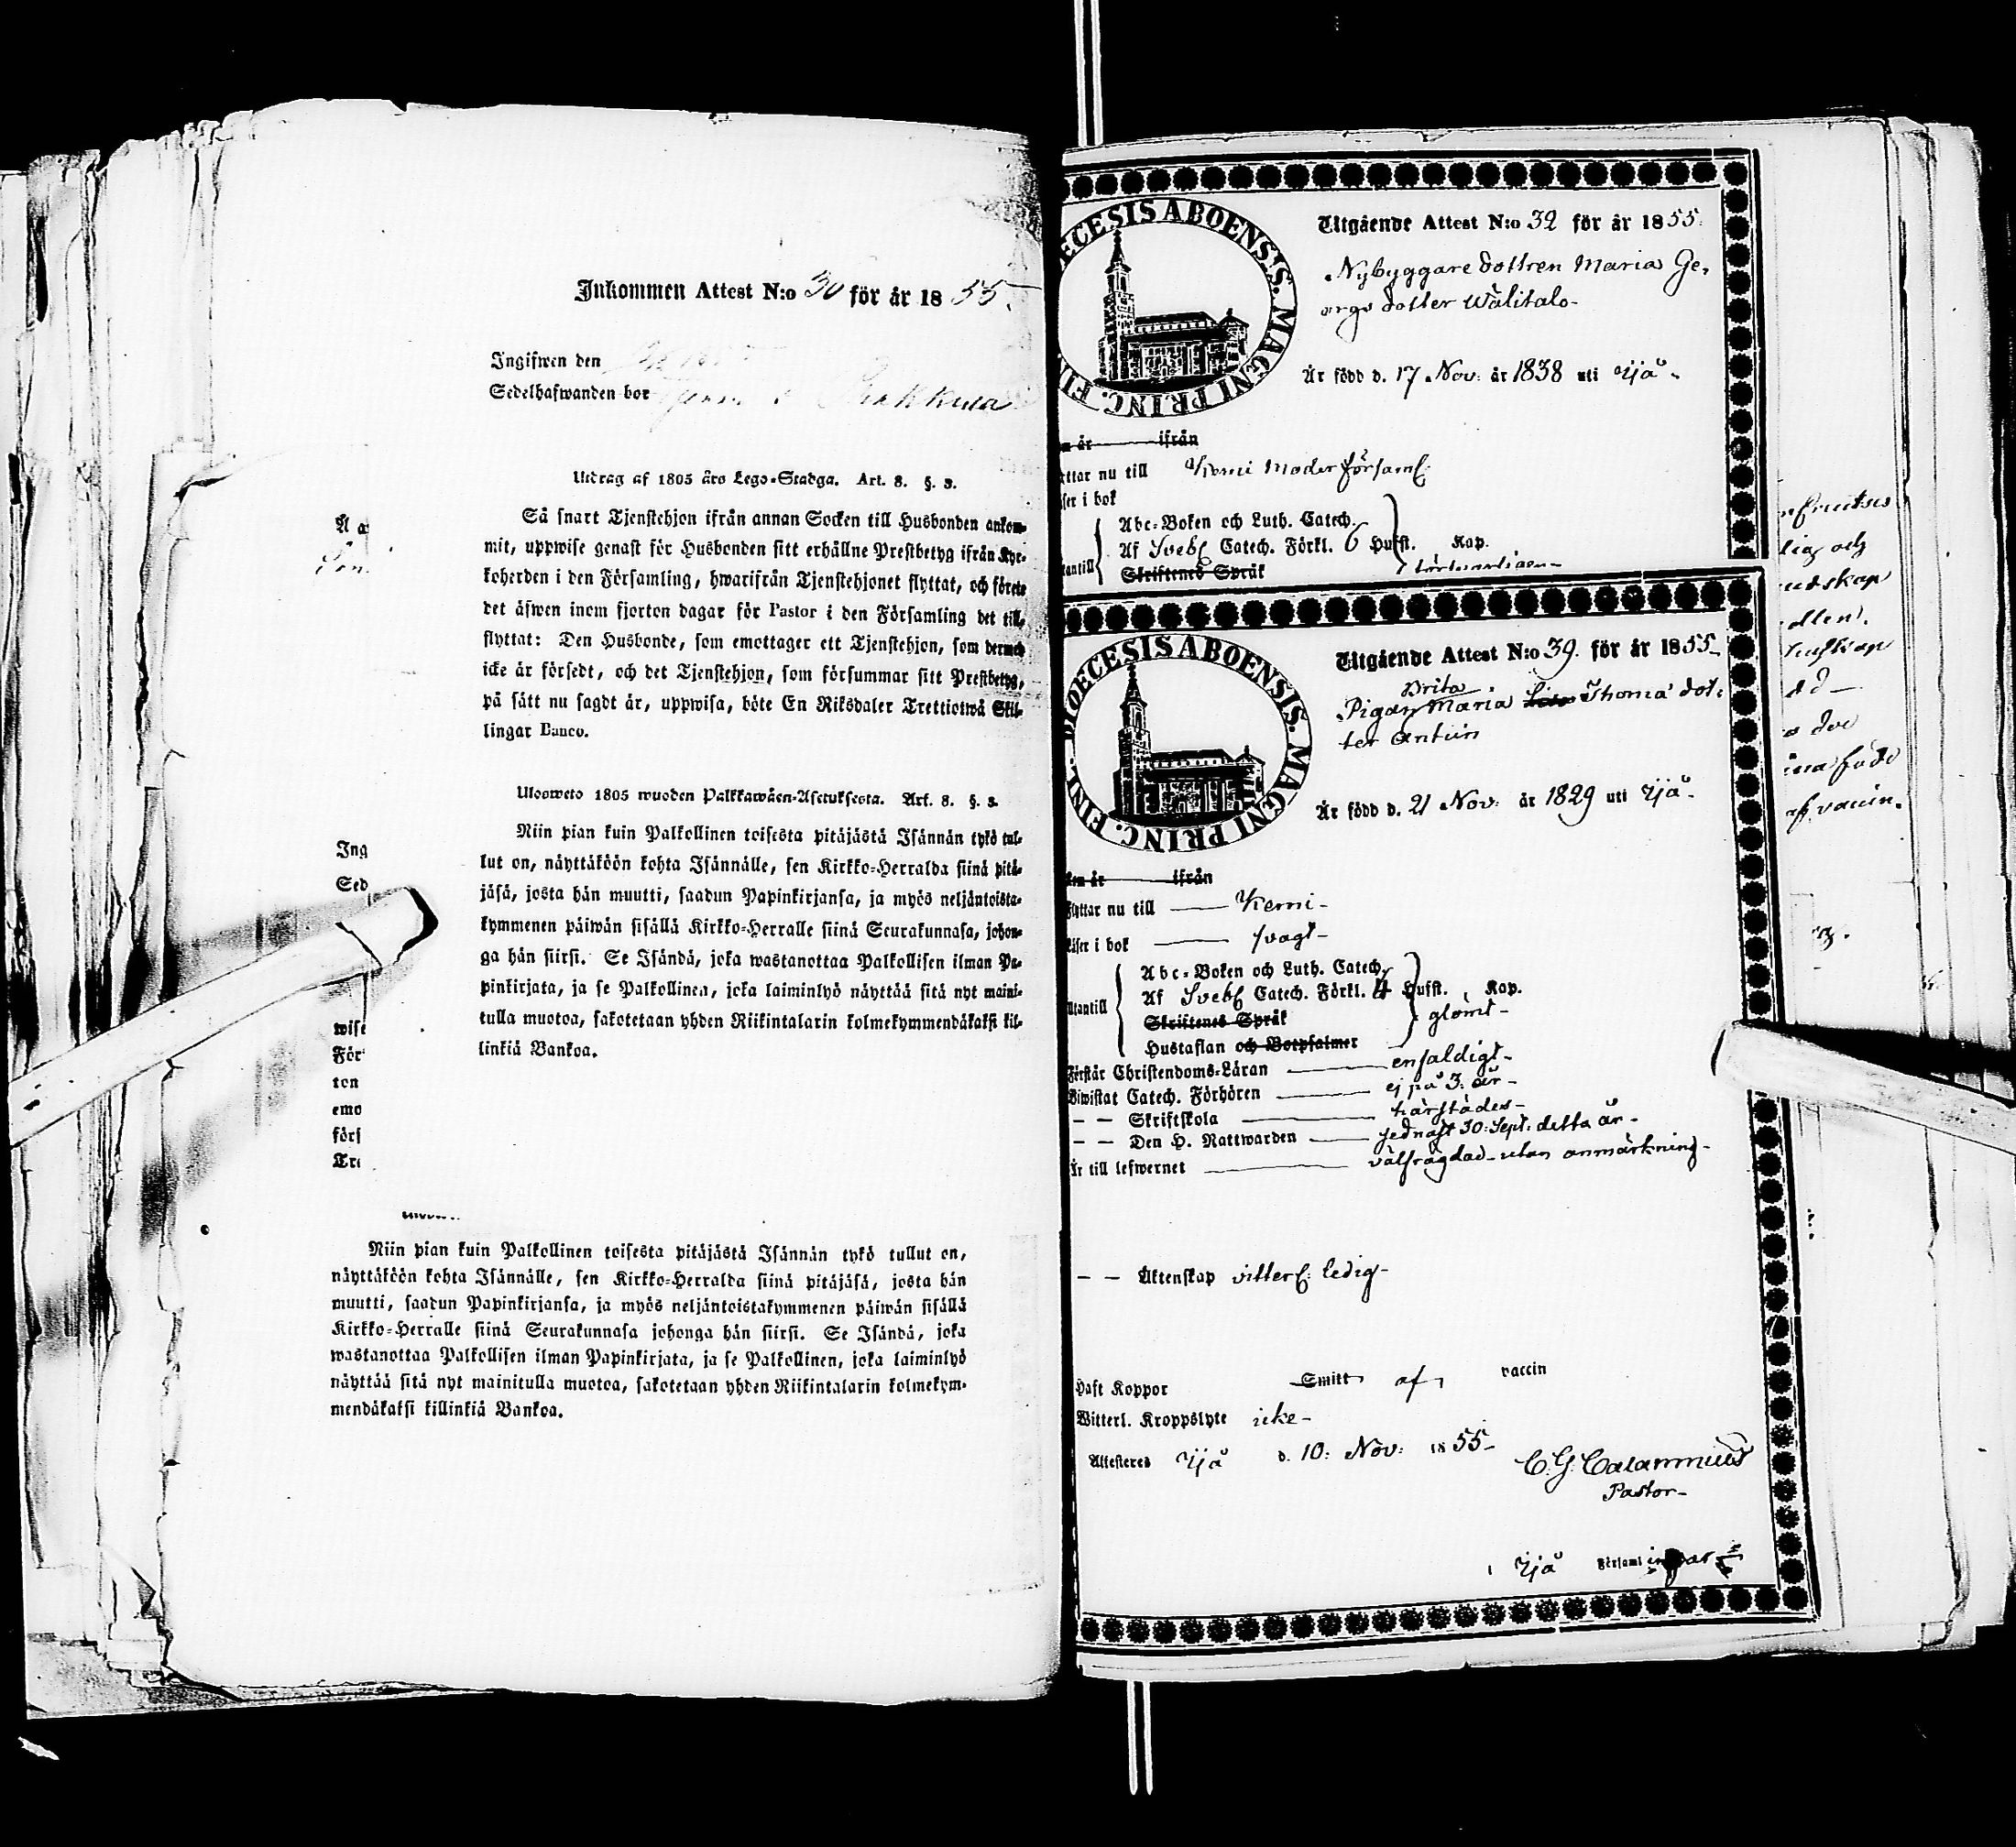 Inkommen Attest N:o 30 för år 1855.
Ingifwen den
Sedelhafwanden bor
Utdrag af 1805 års Lego-Stadga. Art. 8. §. 3.
Så snart Tjenstehjon ifrån annan Socken till Husbonden ankom-
mit, uppwise genast för Husbonden sitt erhållne Prestbetyg ifrån Kyr-
koherden i den Församling, hwarifrån Tjenstehjonet flyttat, och förete
det äfwen inom fjorton dagar för Pastor i den Församling det till-
flyttat: Den Husbonde, som emottager ett Tjenstehjon, som dermed
icke är försedt, och det Tjenstehjon, som försummar sitt Prestbetyg,
på sätt nu sagdt är, uppwisa, böte En Riksdaler Trettiotwå Skil-
lingar Banco.
Ulosweto 1805 wuoden Palkkawäen-Asetuksesta. Art. 8. §. 3.
Niin pian kuin Palkollinen toisesta pitäjästä Isännän tykö tul-
lut on, näyttäköön kohta Isännälle, sen Kirkko-Herralda siinä pitä-
jäsä, josta hän muutti, saadun Papinkirjansa, ja myös neljäntoista-
kymmenen päiwän sisällä Kirkko-Herralle siinä Seurakunnasa, johon-
ga hän siirsi. Se Isändä, joka wastanottaa Palkollisen ilman Pa-
pinkirjata, ja se Palkollinen, joka laiminlyö näyttää sitä nyt maini-
tulla muotoa, sakotetaan yhden Riikintalarin kolmekymmendäkaksi kil-
linkiä Bankoa.
Ing
Sed
wise
För
ton
emo
förs
Tre
Niin pian kuin Palkollinen toisesta pitäjästä Isännän tykö tullut on,
näyttäköön kohta Isännälle, sen Kirkko-Herralda siinä pitäjäsä, josta hän
muutti, saadun Papinkirjansa, ja myös neljäntoistakymmenen päiwän sisällä
Kirkko-Herralle siinä Seurakunnasa johonga hän siirsi. Se Isändä, joka
wastanottaa Palkollisen ilman Papinkirjata, ja se Palkollinen, joka laiminlyö
näyttää sitä nyt mainitulla muotoa, sakotetaan yhden Riikintalarin kolmekym-
mendäkaksi killinkiä Bankoa.
ECESIS ABOENSIS. MAGNI PRINC. FI
Utgående Attest N:o 32 för år 1855.
Nybyggare dottren Maria Ge-
orgs dotter Wälitalo-
Är född d. 17 Nov: år 1838 uti Ijå-
år ifrån
ttar nu till Kemi Moderförsaml:
ser i bok
Abc-Boken och Luth. Catech.
Af Sveb: Catech. Förkl. 6 Hufst. Kap.
tantill
Skriftenes Språk
DIOECESIS ABOENSIS. MAGNI PRINC. FINL.
Utgående Attest N:o 39. för år 1855-
Brita
Pigan Maria Thomä dot-
ter Antiin
Är född d. 21 Nov: år 1829 uti Ijå-
år ifrån
flyttar nu till Kemi-
läser i bok svagt-
Abc-Boken och Luth. Catech.
Utantill Af Sveb: Catech. Förkl. 4 Hufst. Kap.
Skriftenes Språk glömt-
Hustaflan och Botpsalmer
Förstår Christendoms-Läran enfaldigt-
Biwistat Catech. Förhören ej på 3. år-
— — Skriftskola härstädes-
— — Den H. Nattwarden sednast 30: Sept: detta år-
Är till lefwernet välfrägdad- utan anmärkning-
— — Äktenskap vitterl: ledig-
Haft Koppor Smitt af vaccin
Witterl. Kroppslyte icke-
Attesteres Ijå d. 10: Nov: 1855-
C. G. Calamnius
Pastor-
i Ijå Församl